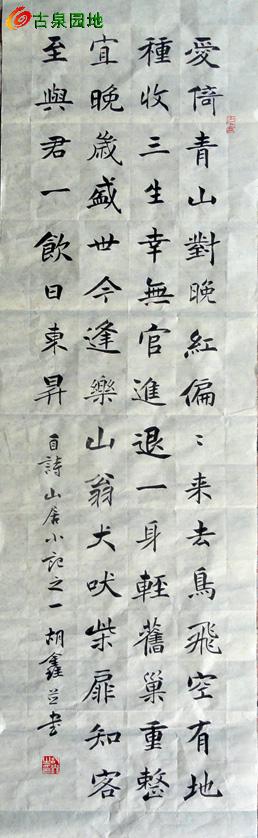 古泉园地
愛倚青山對晚紅偏〻来去鳥飛空有地
種收三生幸無官進退一身輕舊巢重整
宜晚歲盛世今逢樂山翁犬吠柴扉知客
至與君一飲日東昇
自詩山居小記之一 胡鑫书